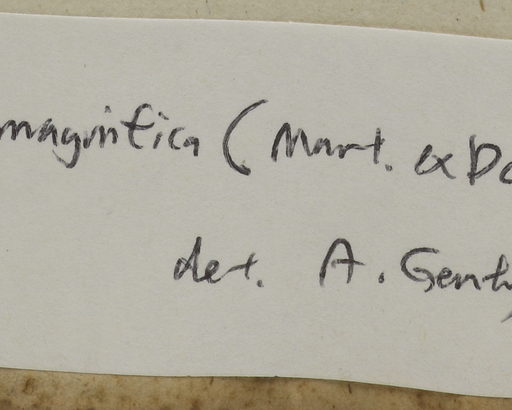 magnifica (Mart. ex Dc
det. A. Gentry